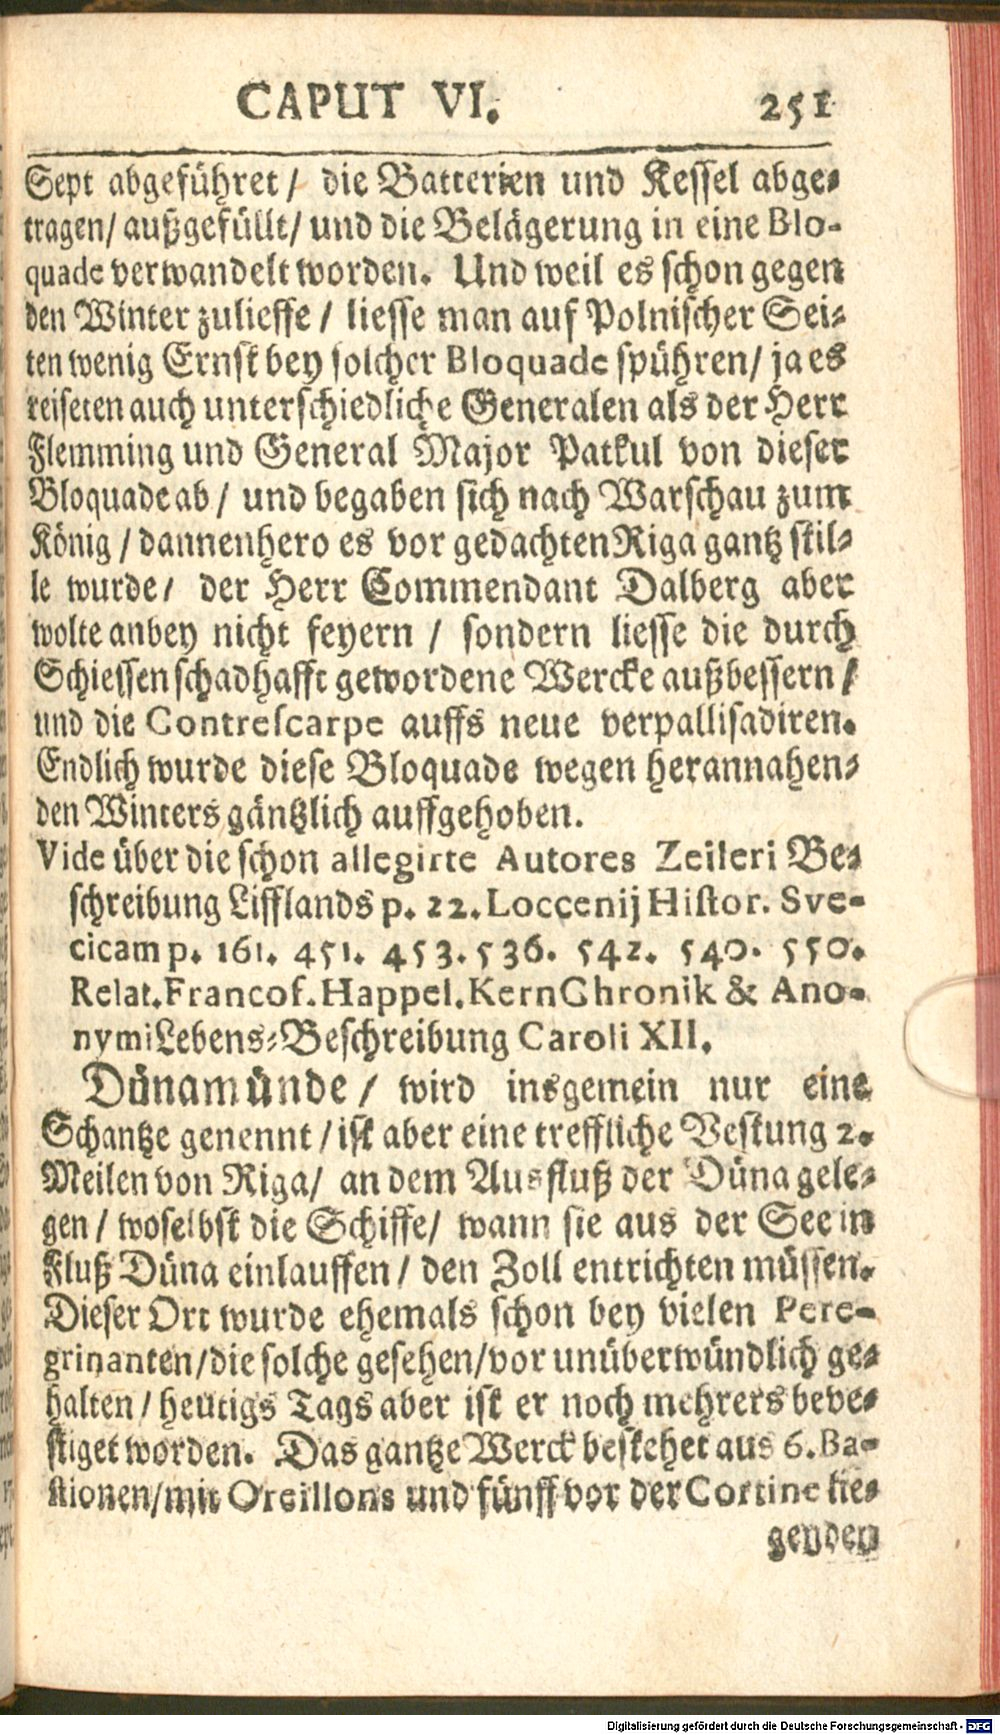 CAPUT VI. 251
Sept abgeführet / die Batterien und Kessel abge-
tragen / außgefüllt / und die Belägerung in eine Blo-
quade verwandelt worden. Und weil es schon gegen
den Winter zulieffe / liesse man auf Polnischer Sei-
ten wenig Ernst bey solcher Bloquade spühren / ja es
reiseten auch unterschiedliche Generalen als der Herr
Flemming und General Major Patkul von dieser
Bloquade ab / und begaben sich nach Warschau zum
König / dannenhero es vor gedachten Riga gantz stil-
le wurde / der Herr Commendant Dalberg aber
wolte anbey nicht feyern / sondern liesse die durch
Schiessen schadhafft gewordene Wercke außbessern /
und die Contrescarpe auffs neue verpallisadiren.
Endlich wurde diese Bloquade wegen herannahen-
den Winters gäntzlich auffgehoben.
Vide über die schon allegirte Autores Zeileri Be-
schreibung Lifflands p. 22. Loccenij Histor. Sve-
cicam p. 161. 451. 453. 536. 542. 540. 550.
Relat. Francof. Happel. Kern Chronik & Ano-
nymi Lebens-Beschreibung Caroli XII.
Dünamünde / wird insgemein nur eine
Schantze genennt / ist aber eine treffliche Vestung 2.
Meilen von Riga / an dem Ausfluß der Düna gele-
gen / woselbst die Schiffe / wann sie aus der See in
Fluß Düna einlauffen / den Zoll entrichten müssen.
Dieser Ort wurde ehemals schon bey vielen Pere-
grinanten / die solche gesehen / vor unüberwündlich ge-
halten / heutigs Tags aber ist er noch mehrers beve-
stiget worden. Das gantze Werck bestehet aus 6. Ba-
stionen / mit Oreillons und fünff vor der Cortine lie-
genden
Digitalisierung gefördert durch die Deutsche Forschungsgemeinschaft - DFG